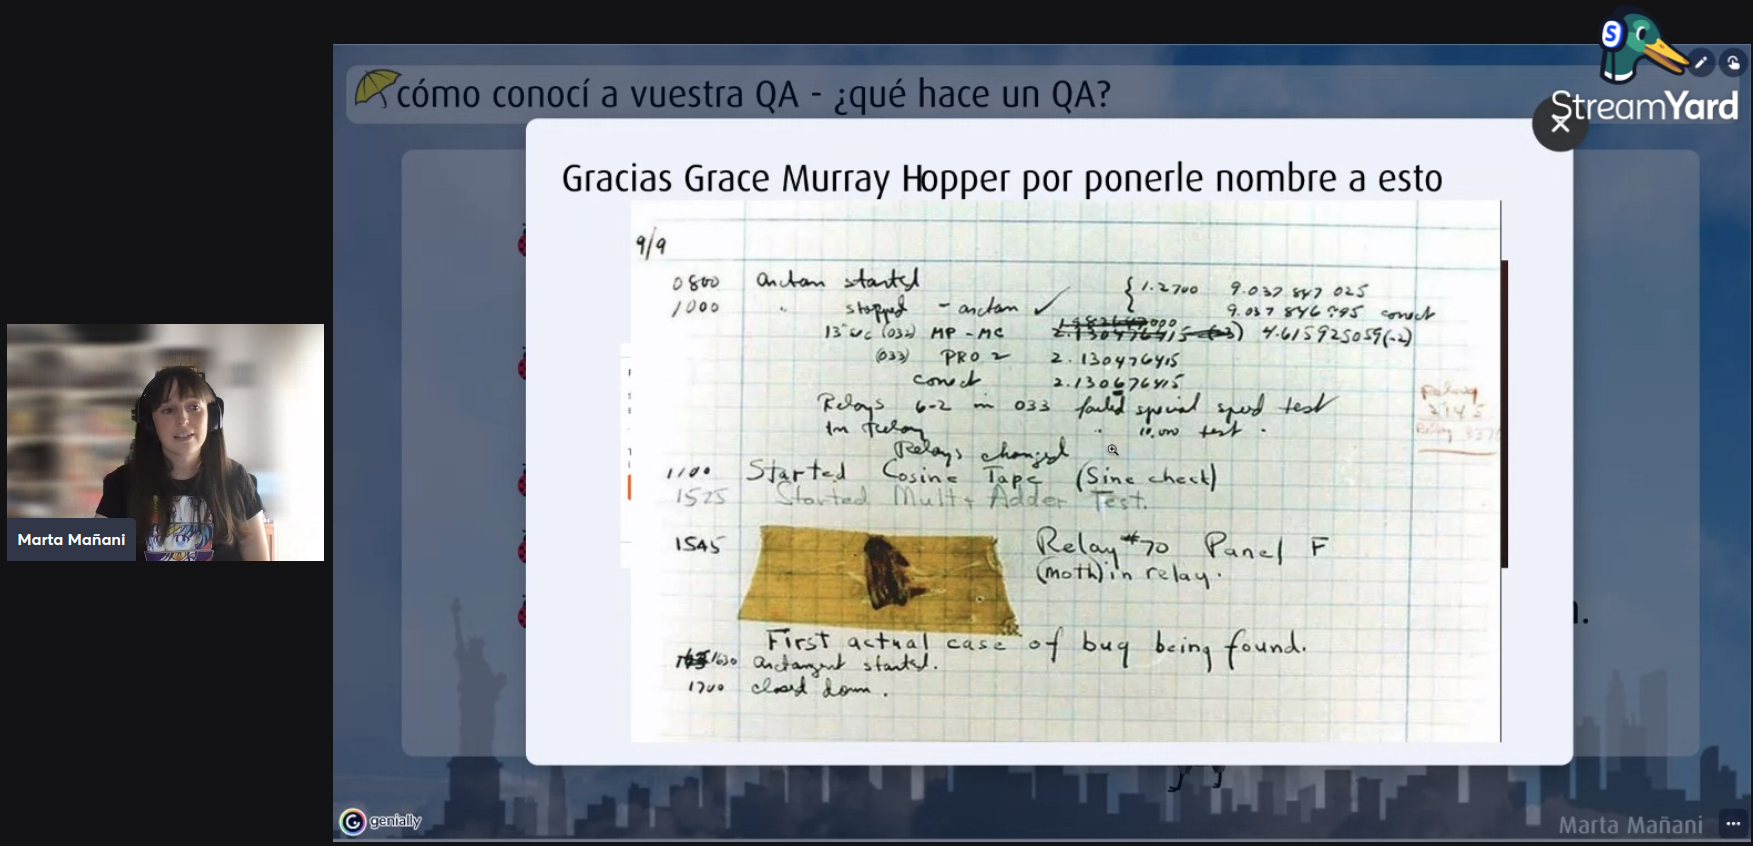 StreamYard
cómo conocí a vuestra QA - ¿qué hace un QA?
Gracias Grace Murray Hopper por ponerle nombre a esto
9/9
0800 Antan started
1000 " stopped - antan ✓
{ 1.2700 9.037 847 025
9.037 846 995 correct
13" uc (032) MP - MC 2.130476415 (-3) 4.615925059(-2)
(033) PRO 2 2.130476415
correct 2.130676415
Relays 6-2 in 033 failed special speed test
In relay " 10,000 test .
Relays changed
Relay
2145
Relay 3370
1100 Started Cosine Tape (Sine check)
1525 Started Mult + Adder Test.
1545 Relay #70 Panel F
(moth) in relay.
First actual case of bug being found.
1630 antangent started.
1700 closed down.
Marta Mañani
genially
Marta Mañani